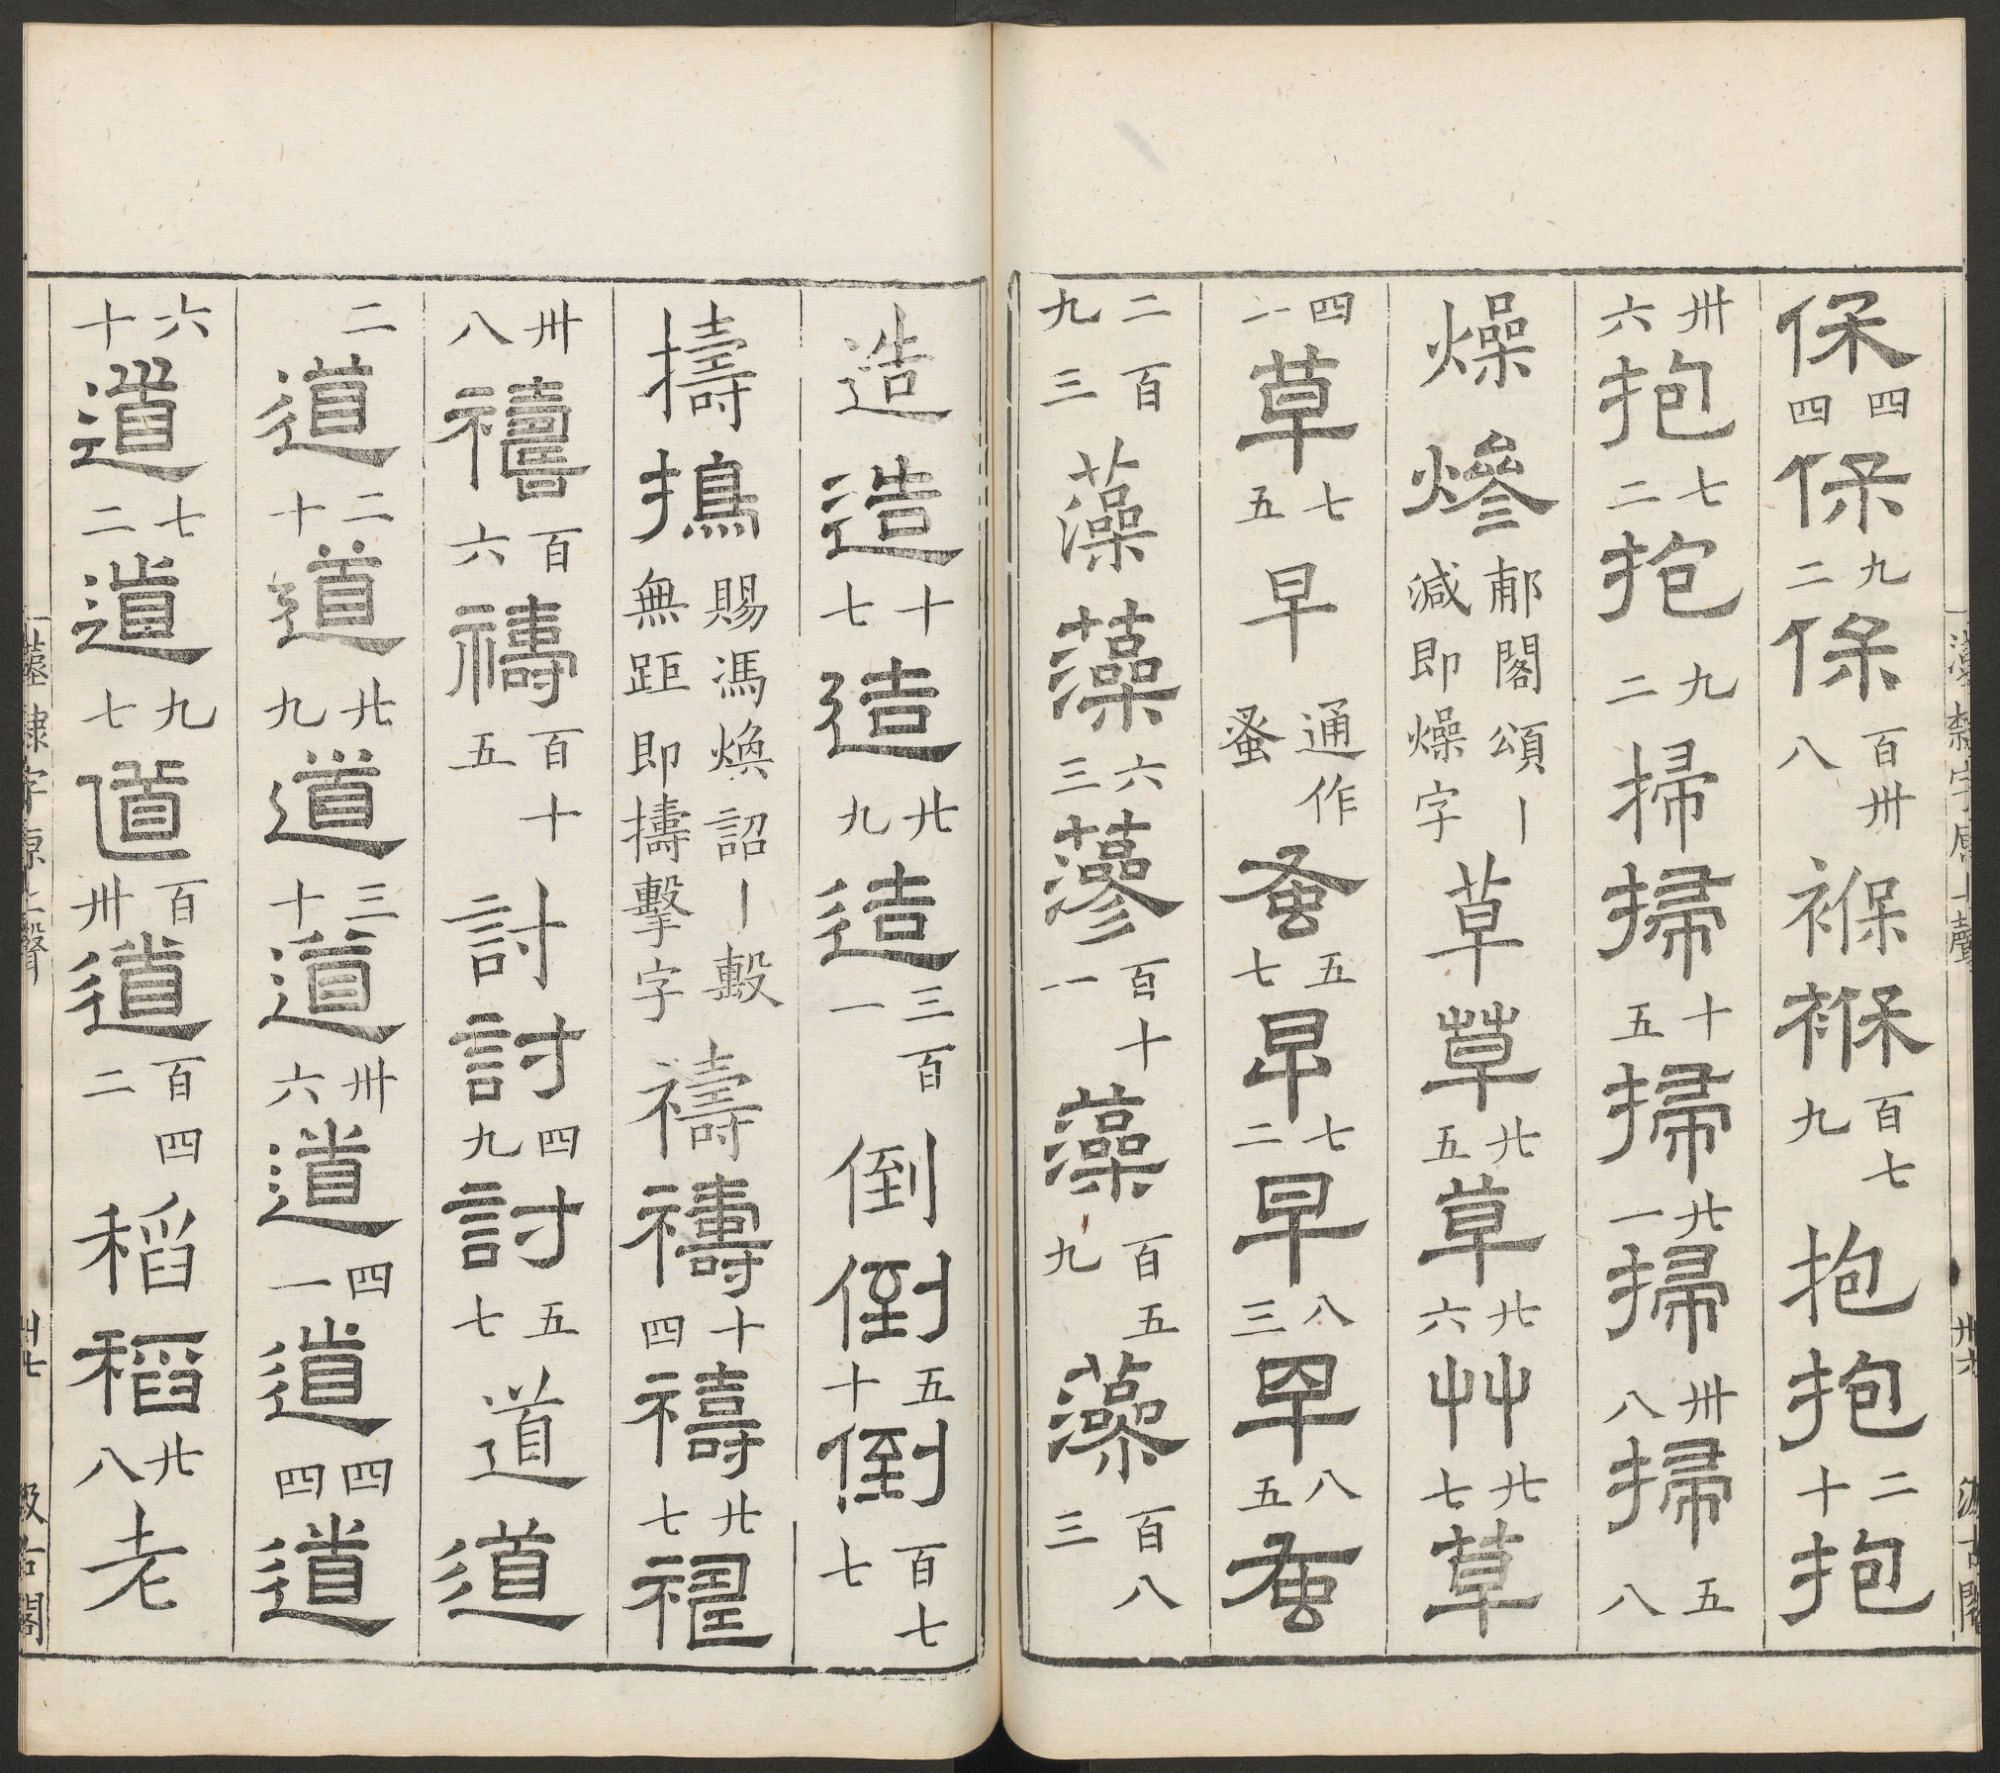 保四四保九二保百卅八褓褓百七九抱抱二十抱
卅六抱七二抱九二掃掃十五掃廿一掃卅八掃五八
燥㷮郙閣頌丨減即燥字草草廿五草廿六艸廿七草
四一草七五早通作蚤蚤五七早七二早八三早八五蚤
二百九三藻藻六三藻百十一藻百五九藻百八三
造造十七造廿九造三百一倒倒五十倒百七七
擣㨶賜馮煥詔丨毄無距即擣擊字禱禱十四禱廿七禱
卅八禱百六禱百十五討討四九討五七道道
二道二十道廿九道三十道卅六道四一道四四道
六十道七二道九七道百卅道百四二稻稻廿八老
漢隸字原上聲 卅六 汲古閣
漢隸字原上聲 卅七 汲古閣